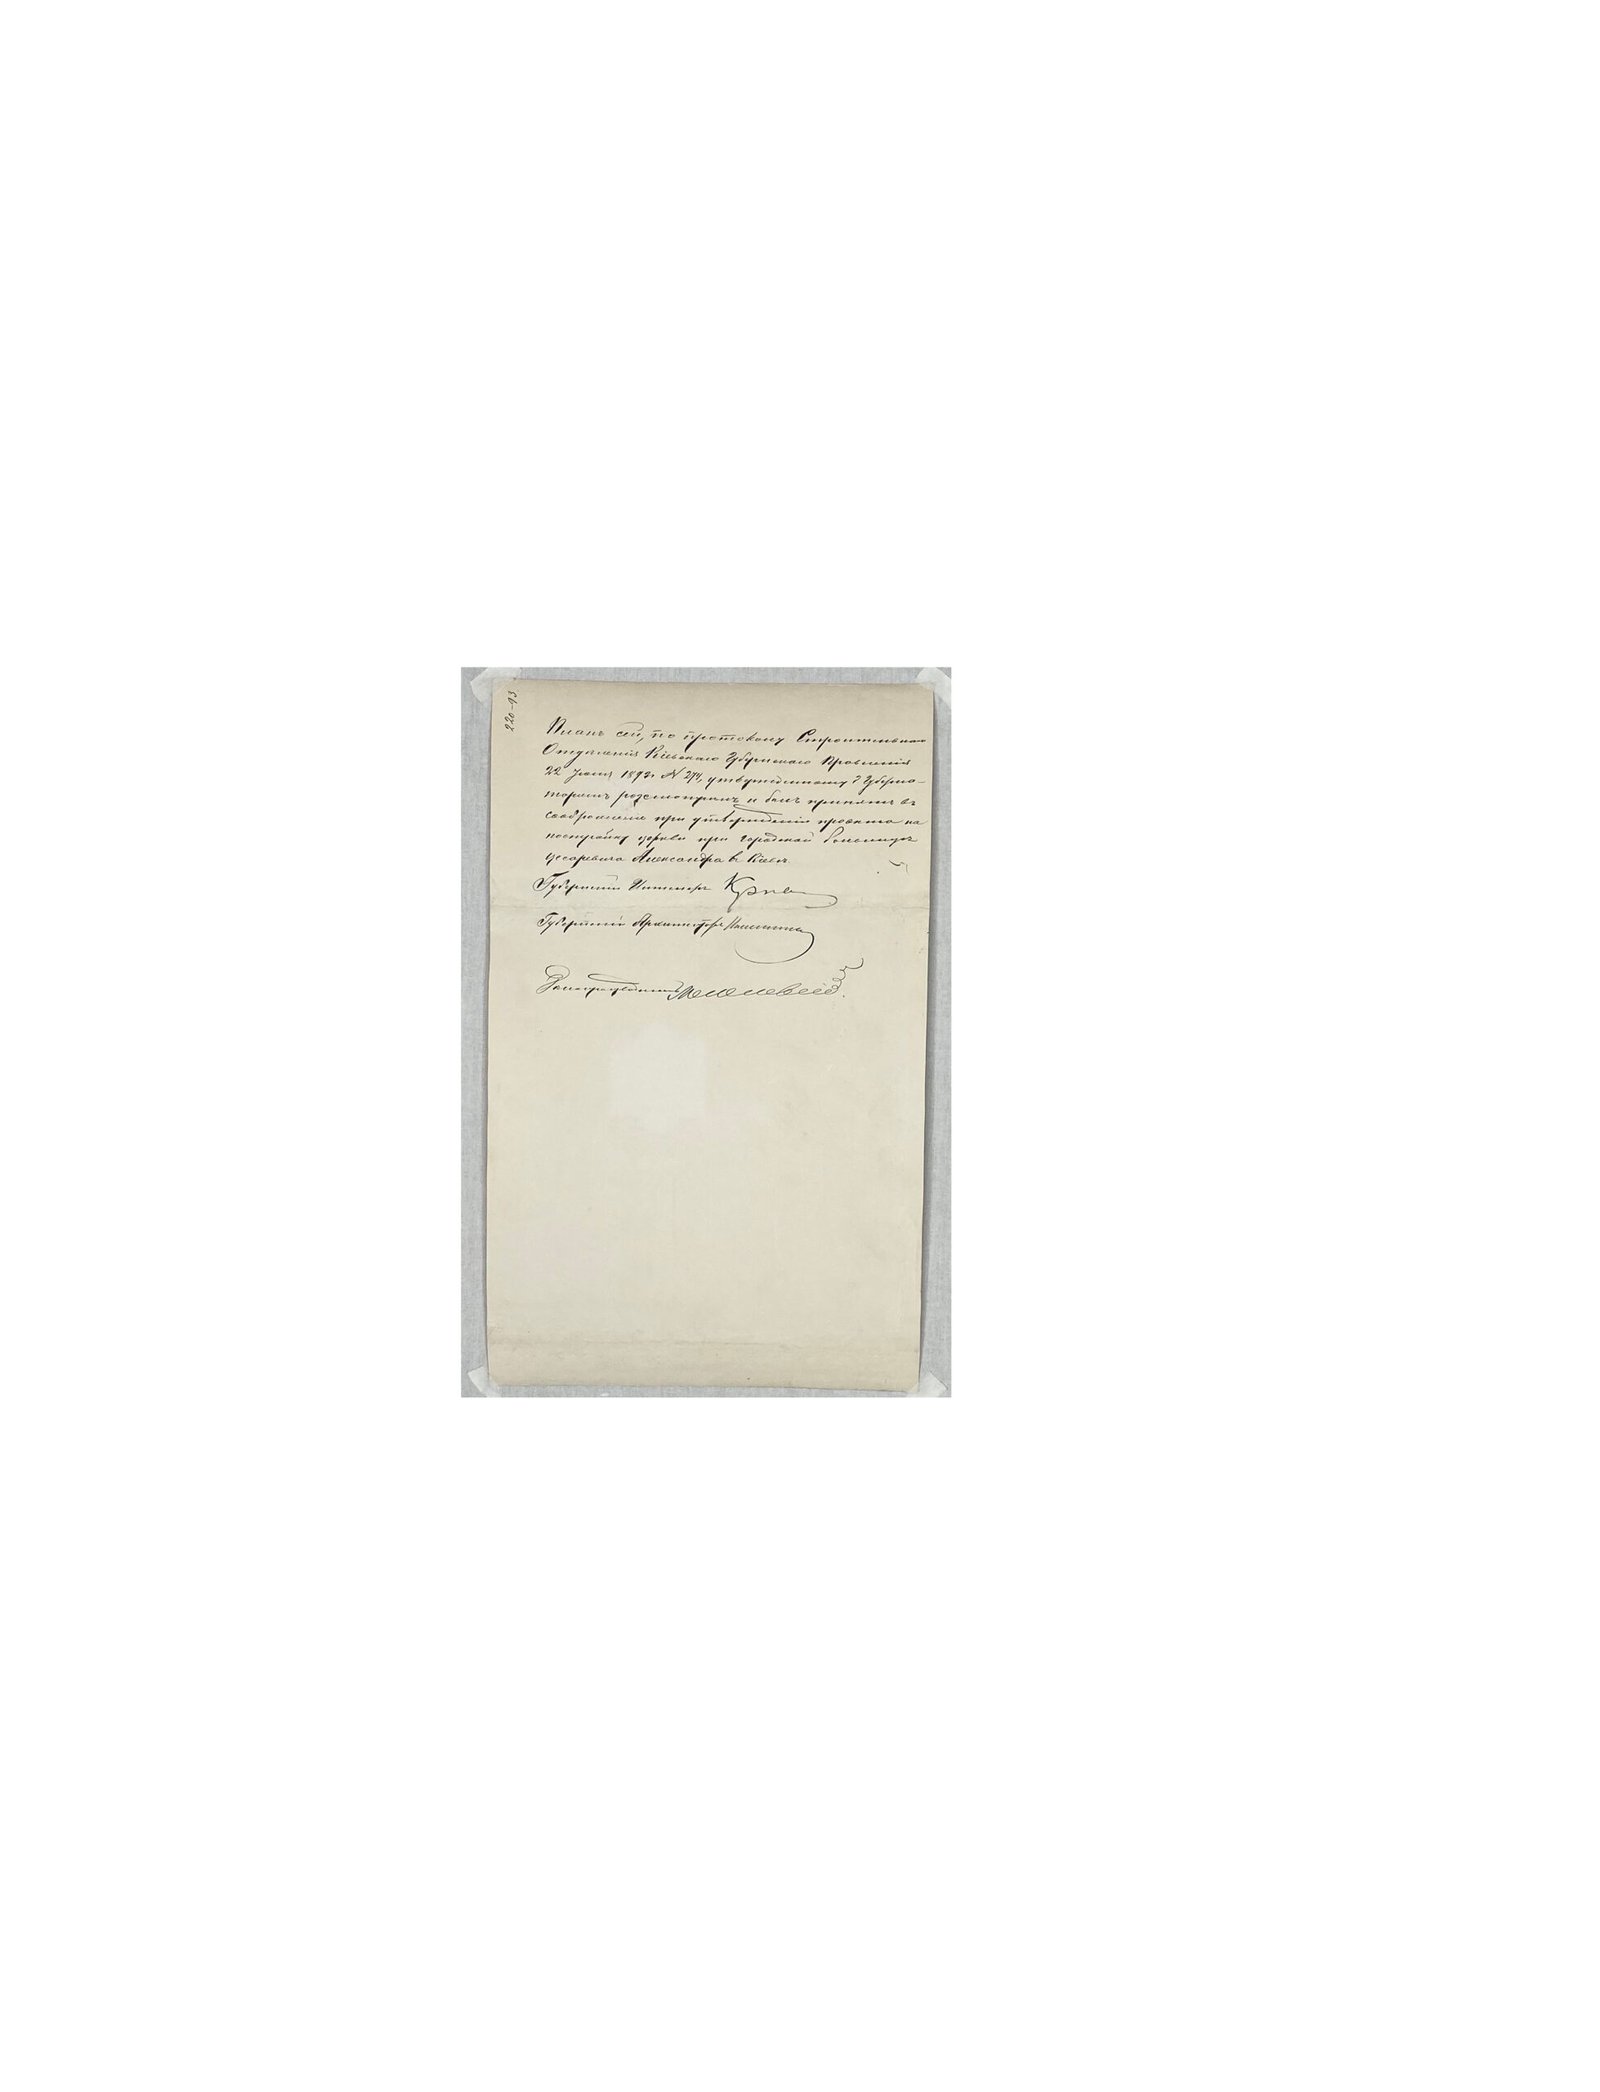 220-93
Планъ сей, по протоколу Строительнаго
Отделенія Кіевскаго Губернскаго Правленія
22 Іюня 1893 г. № 274, утвержденному Губерна-
торомъ разсмотренъ и былъ принятъ въ
соображеніе при утвержденіи проэкта на
постройку церкви при городской больнице
цесаревича Александра въ Кіеве.
Губернскій Инженеръ
Губернскій Архитекторъ
Делопроизводитель